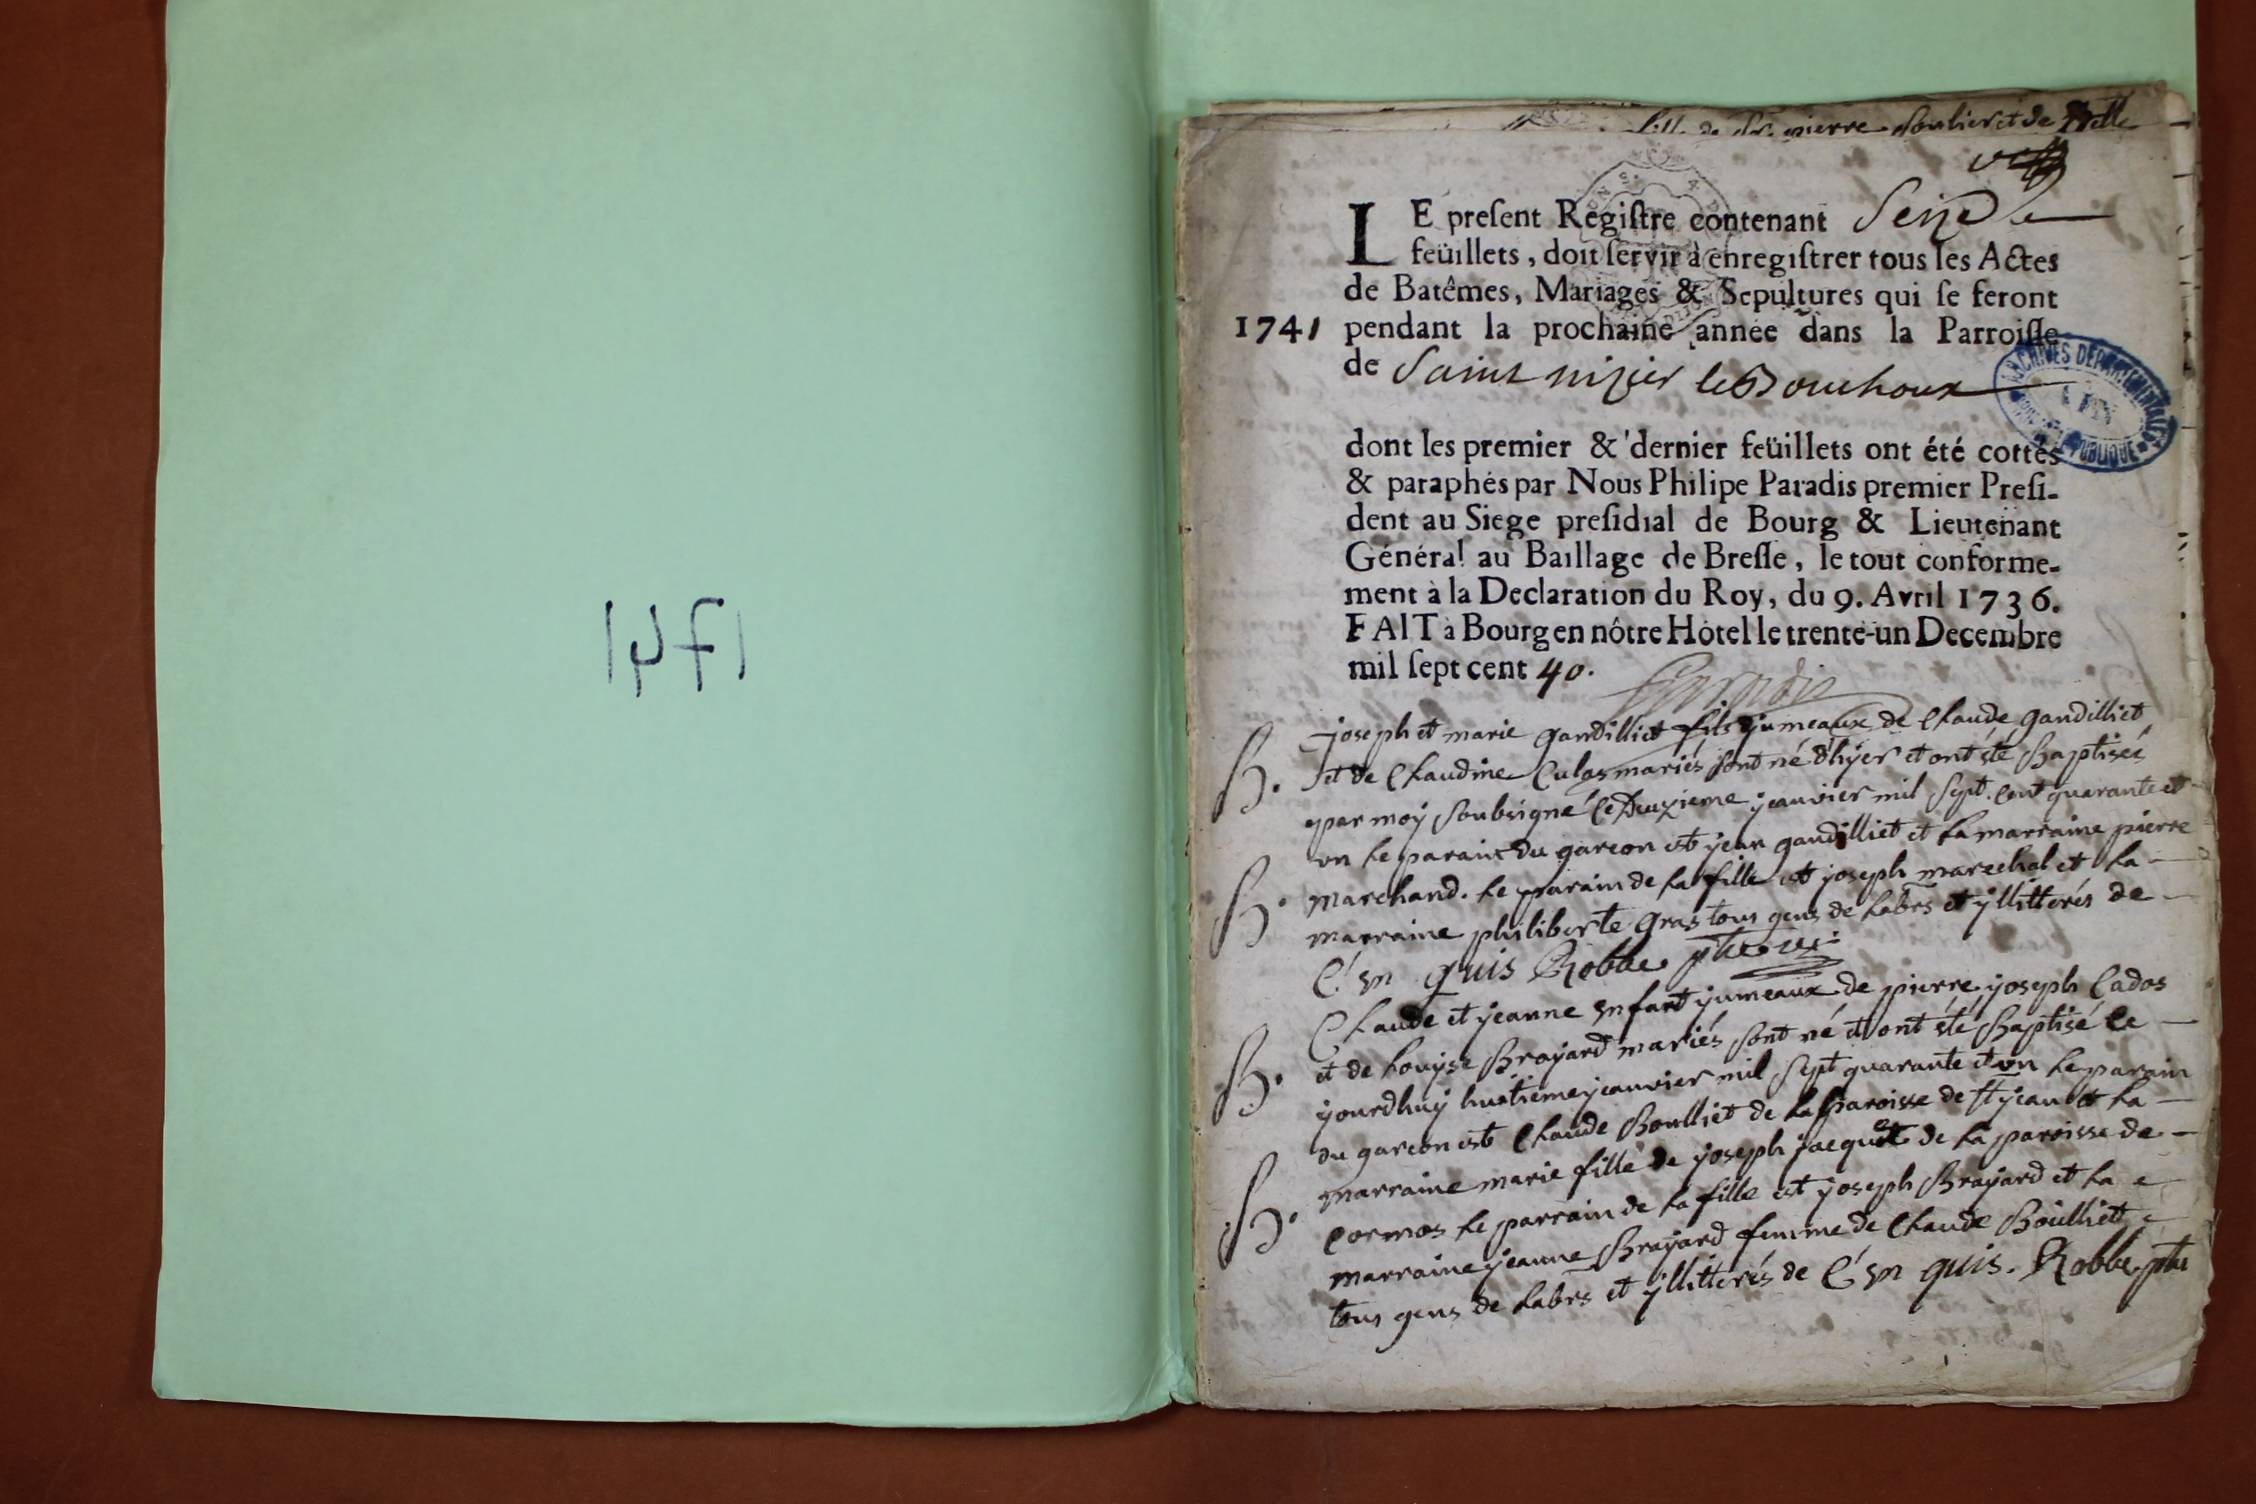 1741
fille de Sr. pierre soulier et de Delle
LE presEnt Registre contenant Seize
feüillets, doit servir à enregistrer tous les Actes
de Batêmes, Mariages & Sepultures qui se feront
1741 pendant la prochaine année dans la Parroisse
de Saint nizier le Bouchoux
ARCHIVES DEPARTEMENTALES
dont les premier & dernier feüillets ont été cottés
& paraphés par Nous Philipe Paradis premier Presi-
dent au Siege presidial de Bourg & Lieutenant
Général au Baillage de Bresse, le tout conforme-
ment à la Declaration du Roy, du 9. Avril 1736.
FAIT à Bourg en nôtre Hôtel le trente-un Decembre
mil sept cent 40.
Paradis
B. joseph et marie gandilliet fils jumeaux de Claude gandilliet
et de Claudine Culas mariés sont né d'hyer et ont été Baptisés
par moy soubsigné le deuxieme jeanvier mil sept cent quarante et
un le parain du garcon est jean gandilliet et la marraine pierre
B. marchand. le parain de la fille est joseph marechal et la
marraine philiberte gras tous gens de labrs et yllitterés de
C'en quis Robbe ptre
Claude et jeanne enfant jumeaux de pierre joseph Cados
B. et de Louyse Brayard mariés sont né et ont été Baptisé ce
jourdhuy huitieme jeanvier mil sept quarante et un le parain
du garcon est Claude Boulliet de la paroisse de st jean et la
B. marraine marie fille de joseph jacquet de la paroisse de
cormos le parrain de la fille est joseph Brayard et la
marraine jeanne Brayard femme de Claude Boulliet
tous gens de labrs et yllitterés de C'en quis. Robbe ptre